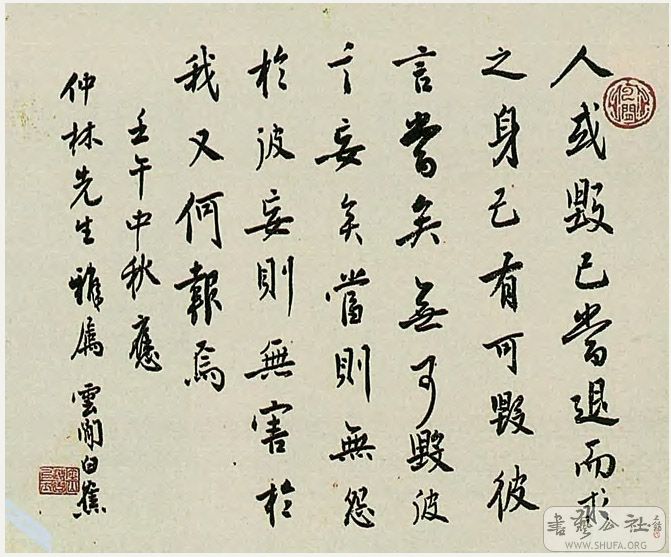 人或毀己當退而求
之身己有可毀彼
言當矣無可毀彼
言妄矣當則無怨
於彼妄則無害於
我又何報焉
壬午中秋應
仲林先生雅属 雲間白蕉
書藝公社
WWW.SHUFA.ORG